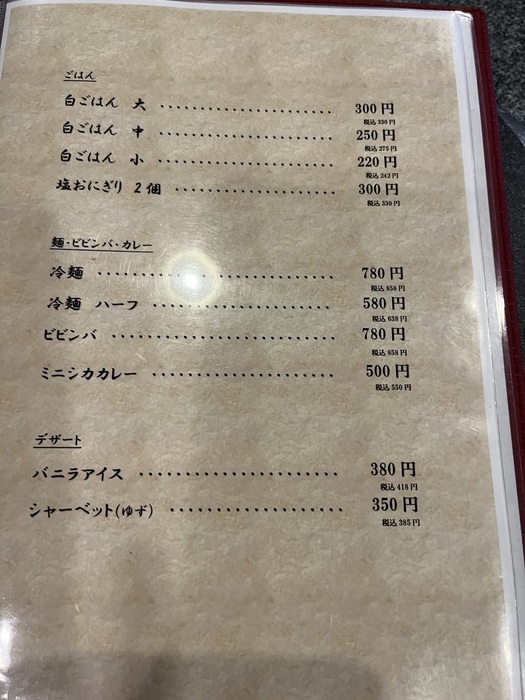 ごはん
白ごはん 大 ........................ 300円
税込 330円
白ごはん 中 ........................ 250円
税込 275円
白ごはん 小 ........................ 220円
税込 242円
塩おにぎり 2個 ...................... 300円
税込 330円
麺・ビビンバ・カレー
冷麺 ............................ 780円
税込 858円
冷麺 ハーフ ........................ 580円
税込 638円
ビビンバ .......................... 780円
税込 858円
ミニシカカレー ...................... 500円
税込 550円
デザート
バニラアイス ....................... 380円
税込 418円
シャーベット(ゆず) ................... 350円
税込 385円